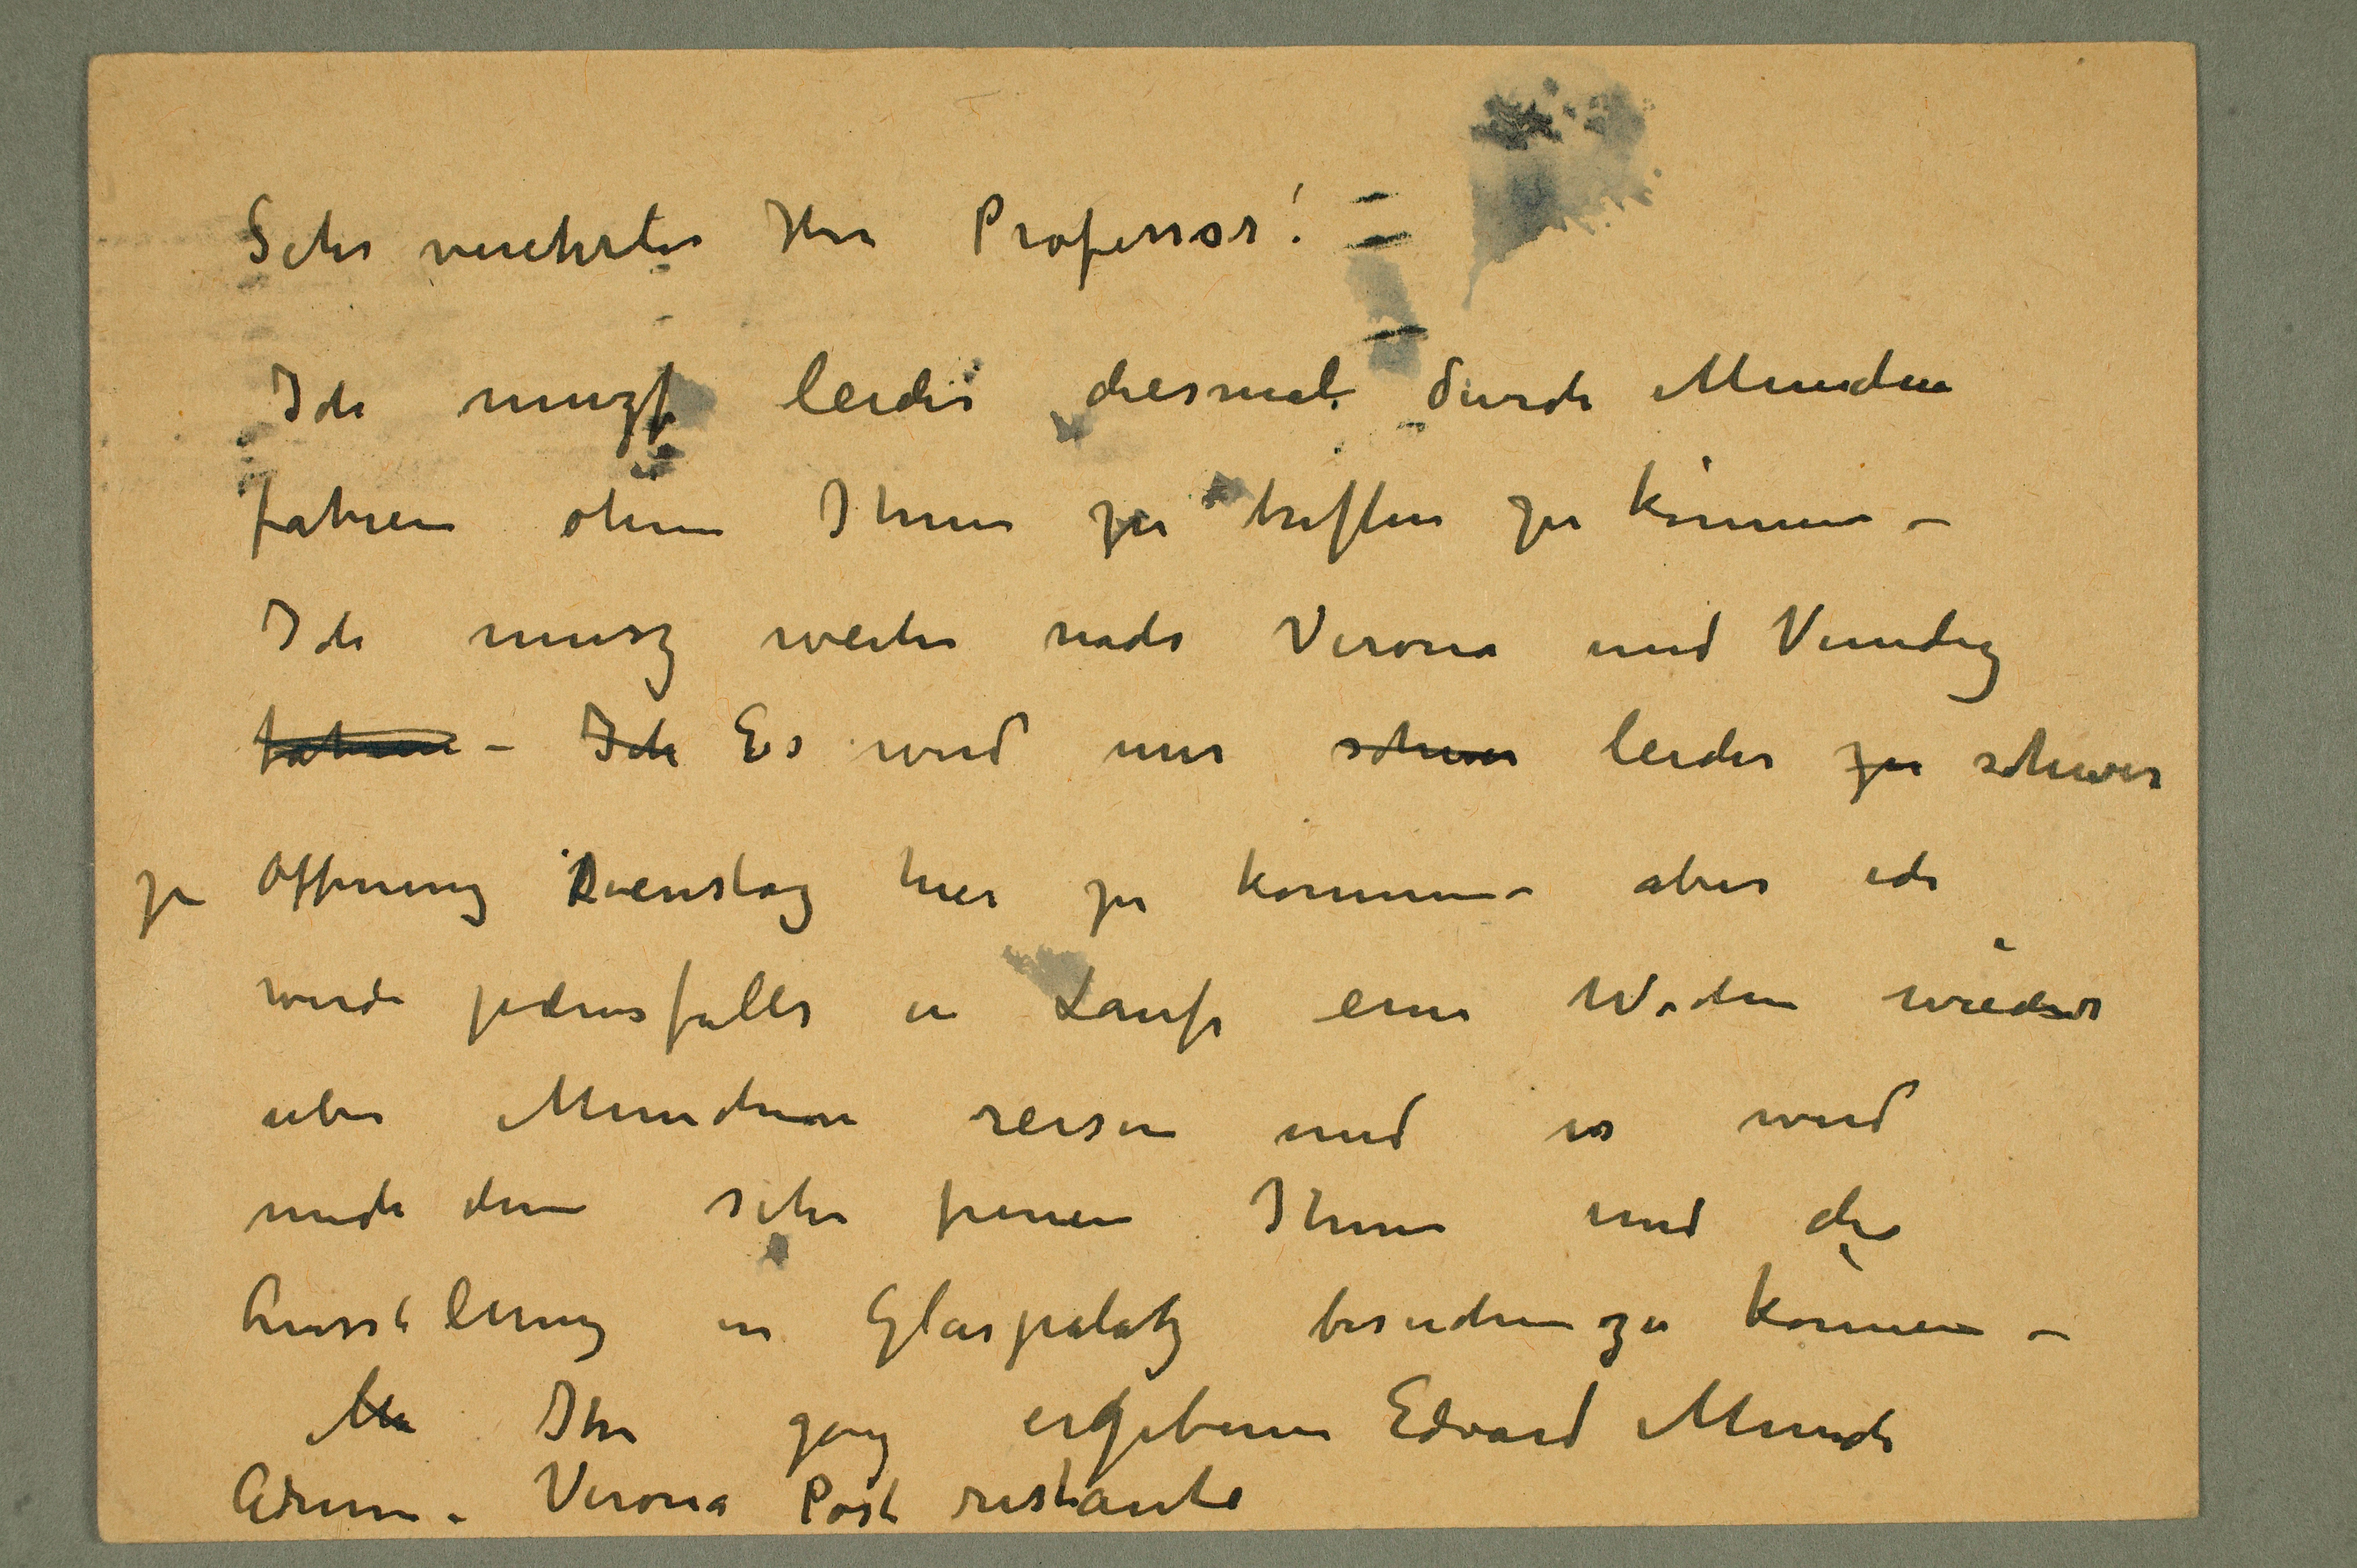 Sehr verehrter Herr Professor!
Ich muszt leider diesmal durch Munchen
fahren ohne Ihnen zu treffen zu können –
Ich musz weiter nach Verona und Venedig
fahren – Ich Es wird mir schwer leider zu schwer
zu Öffnung Dienstag hier zu kommen – aber ich
werde jedensfalls in Laufe einer Wochen wieder
uber Munchen reisen und es wird
mich denn sehr freuen Ihnen und die
Ausstelung in Glaspalatz besuchen zu können –
Ihr ganz ergebener Edvard Munch
Adresse. Verona Post restante